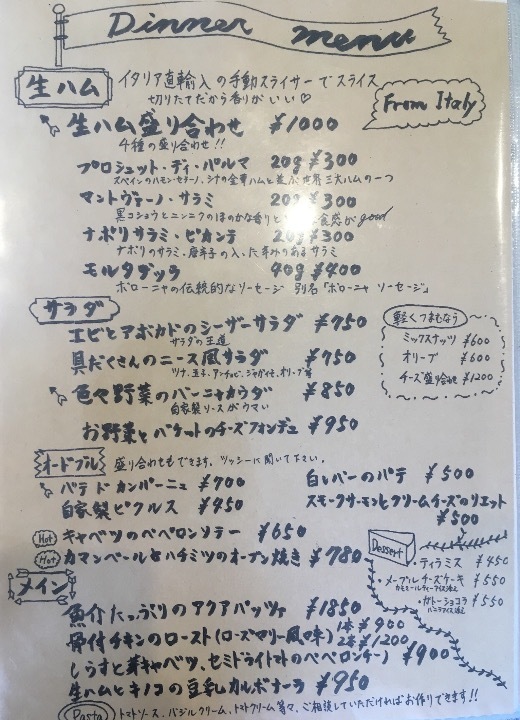 Dinner menu
生ハム
イタリア直輸入の手動スライサーでスライス
切りたてだから香りがいい♡
From Italy
生ハム盛り合わせ ¥1000
4種の盛り合せ!!
プロシュット・ディ・パルマ 20g ¥300
スペインのハモン・セラーノ、シナの金華ハムと並ぶ世界三大ハムの一つ
マントヴァーノ・サラミ 20g ¥300
黒コショウとニンニクのほのかな香りと 食感がgood
ナポリサラミ・ピカンテ 20g ¥300
ナポリのサラミ・唐辛子の入った辛みのあるサラミ
モルタデッラ 40g ¥400
ボローニャの伝統的なソーセージ 別名「ボローニャ ソーセージ」
サラダ
エビとアボカドのシーザーサラダ ¥750
サラダの王道
具だくさんのニース風サラダ ¥750
ツナ、玉子、アンチョビ、ジャガイモ、オリーブ等
色々野菜のバーニャカウダ ¥850
自家製ソースがウマい
お野菜とバケットのチーズフォンデュ ¥950
軽くつまむなら
ミックスナッツ ¥600
オリーブ ¥600
チーズ盛り合わせ ¥1200
オードブル
盛り合わせもできます。ツッシーに聞いて下さい。
パテ ド カンパーニュ ¥700
自家製ピクルス ¥450
Hot キャベツのペペロンソテー ¥650
Hot カマンベールとハチミツのオーブン焼き ¥780
白レバーのパテ ¥500
スモークサーモンとクリームチーズのリエット
¥500
Dessert
・ティラミス ¥450
・メープルチーズケーキ ¥550
・ガトーショコラ ¥550
メイン
魚介たっぷりのアクアパッツァ ¥1850
骨付チキンのロースト(ローズマリー風味) 1本¥900 2本¥1200
しらすと芽キャベツ、セミドライトマトのペペロンチーノ ¥900
生ハムとキノコの豆乳カルボナーラ ¥950
Pasta トマトソース、バジルクリーム、トマトクリーム等々、ご相談していただければお作りできます!!